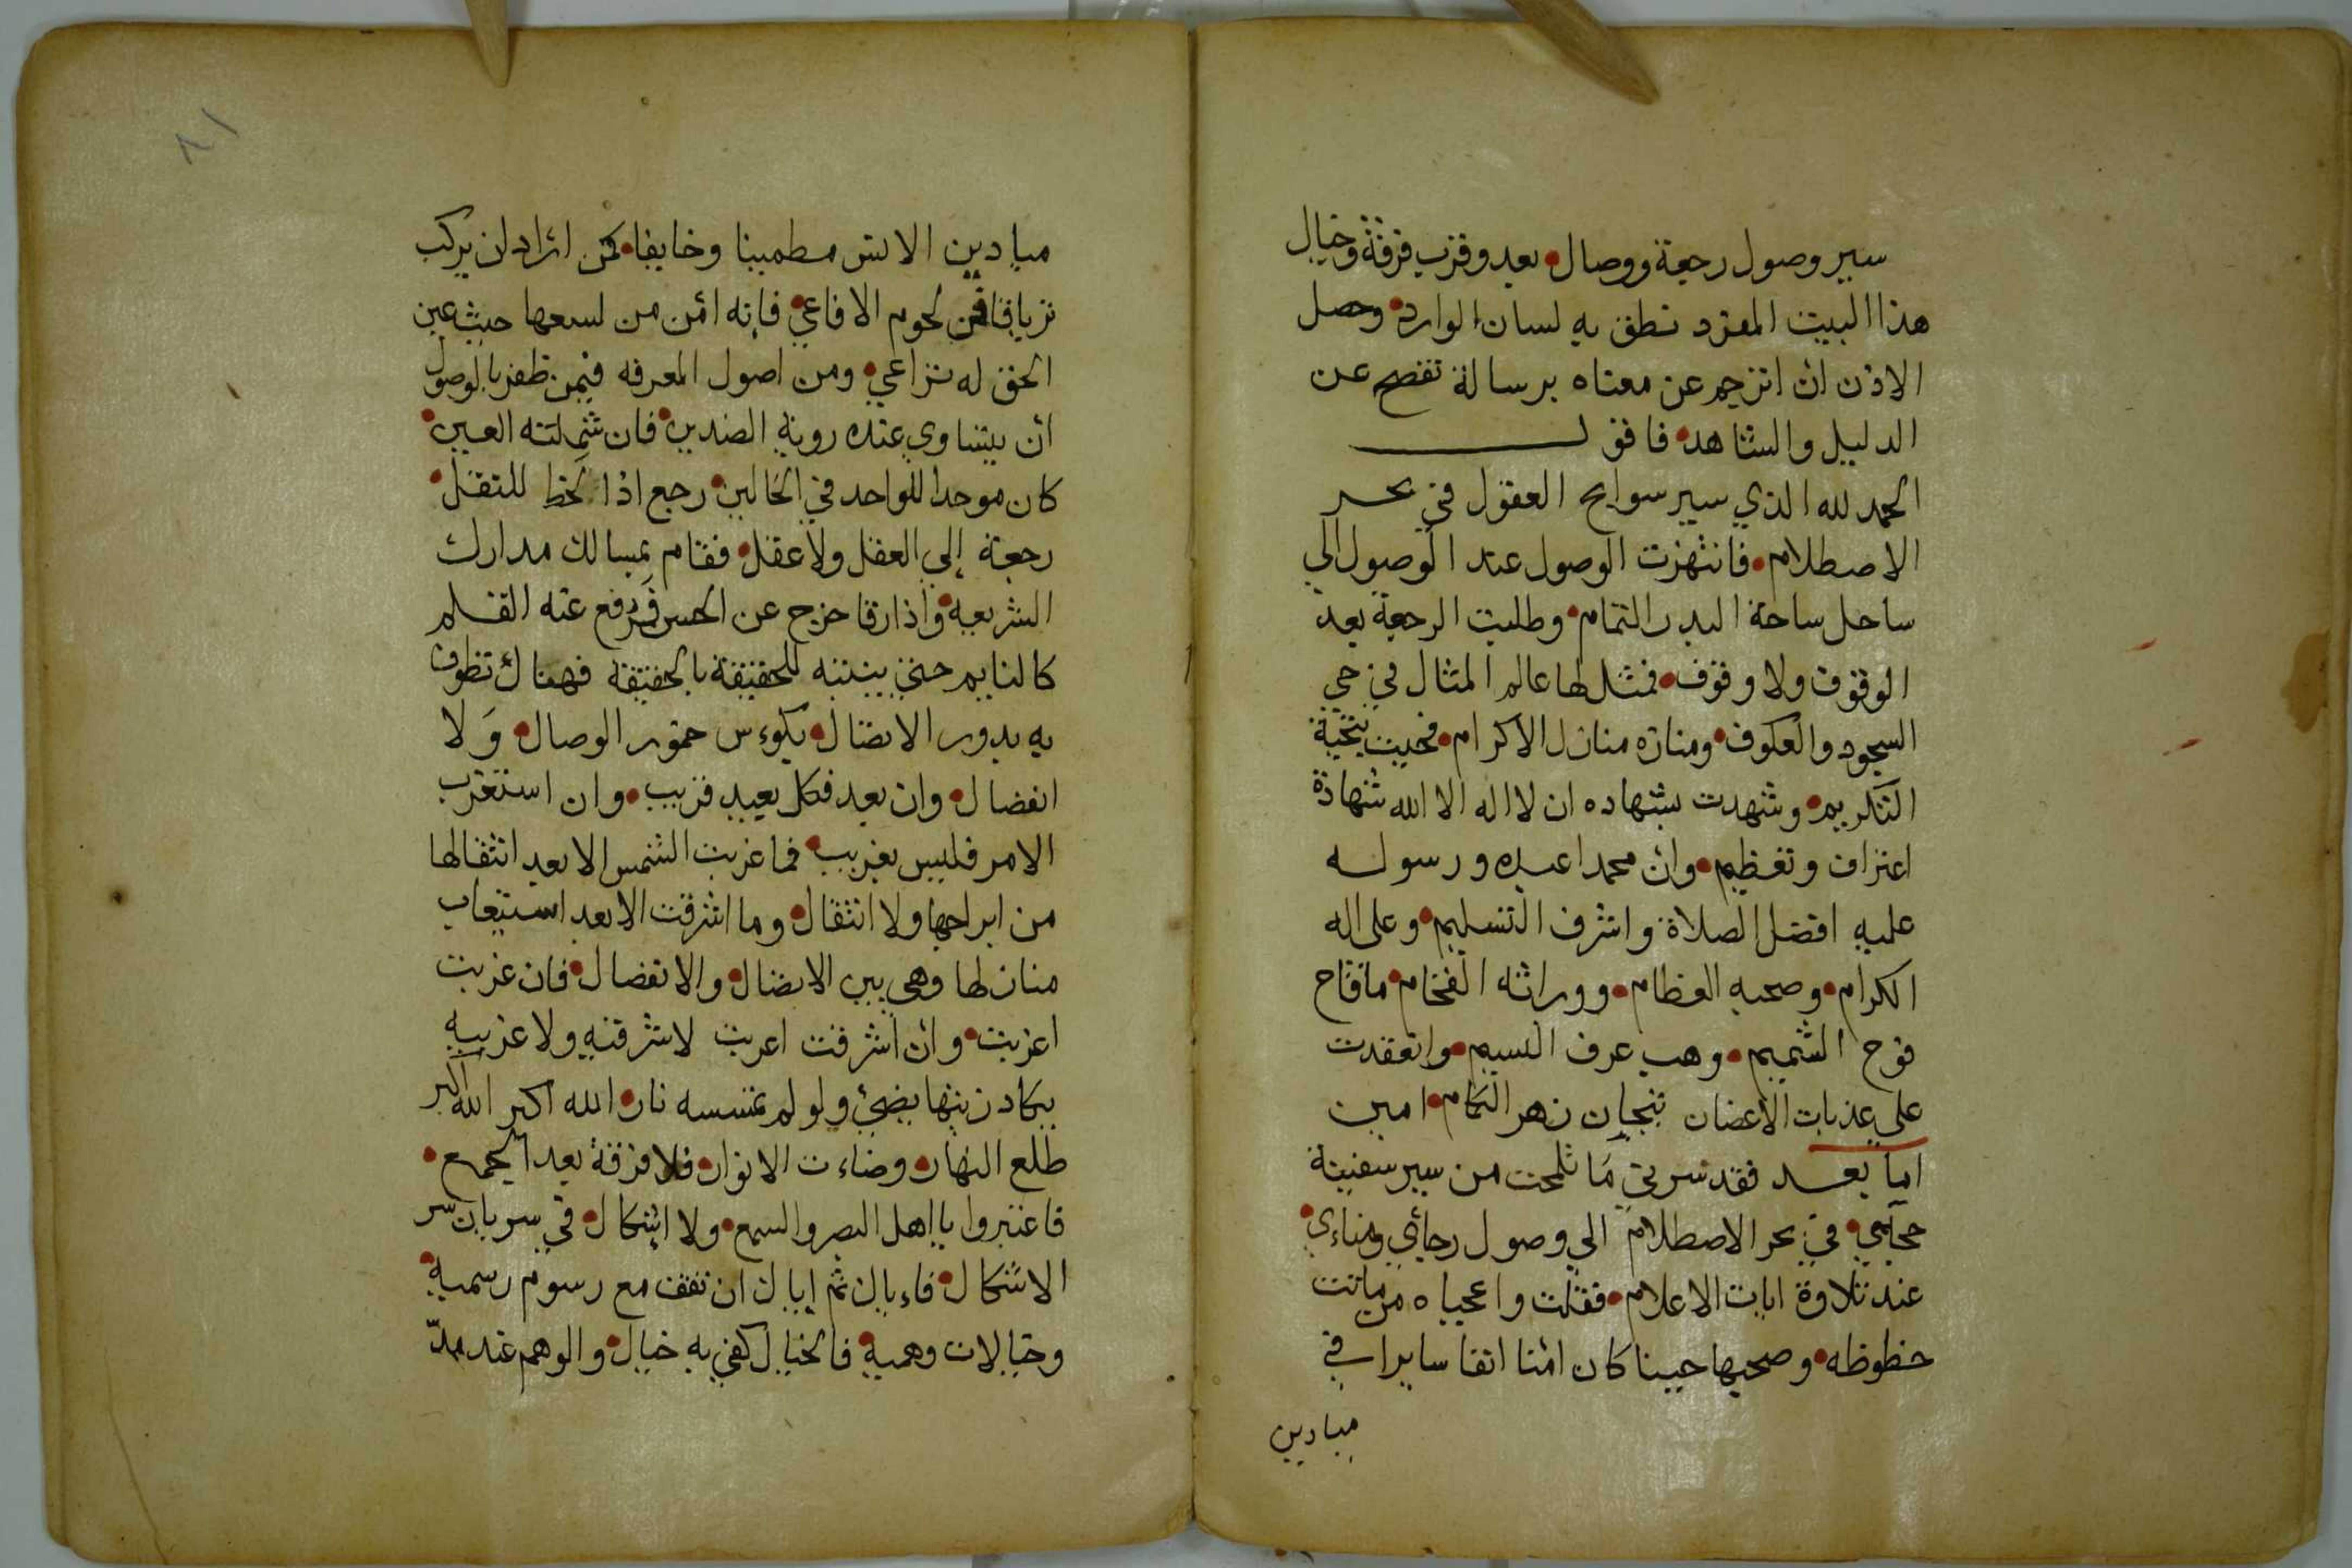 سير وصول رجعة ووصال بعد وقرب فرقة وخيال
هذا البيت المفرد نطق به لسان الوارد وحصل
الاذن ان اترجم عن معناه برسالة تفصح عن
الدليل والشاهد فاقول
الحمد لله الذي سير سوابح العقول في بحر
الاصطلام فانتهزت الوصول عند الوصول الي
ساحل ساحة البدر التمام وطلبت الرجعة بعد
الوقوف ولا وقوف فمثل لها عالم المثال في حي
السجود والعكوف ومنازه منازل الاكرام فحييت بتحية
التكريم وشهدت بشهاده ان لا اله الا الله شهادة
اعتراف وتعظيم وان محمدا عبده ورسوله
عليه افضل الصلاة واشرف التسليم وعلى اله
الكرام وصحبه العظام ووراثه الفخام ما فاح
فوح الشميم وهب عرف النسيم وانعقدت
على عذبات الاغصان تيجان زهر الكمام امين
اما بعد فقد سرني ما تلمحت من سير سفينة
حجايي في بحر الاصطلام الي وصول رجائي ومناءي
عند تلاوة ايات الاعلام فقلت واعجباه من ماتت
حظوظه وصحبها حيينا كان امنا انفا سايرا في
مبادين
ميادين الانس مطمينا وخايفا كمن اراد ان يركب
ترياقا من لحوم الافاعي فانه امن من لسعها حيث عين
الحق له تراعي ومن اصول المعرفه فيمن ظفر بالوصول
ان يتساوي عنده روية الضدين فان شملته العين
كان موحدا للواحد في الحالين رجع اذا لحظ للتقل
رجعة إلى العقل ولا عقل فقام بمسالك مدارك
الشريعة واذا رقا خرج عن الحس فرفع عنه القلم
كالنايم حتي ينتبه للحقيقة بالحقيقة فهناك تطوف
به بدور الاتصال بكوءس خمور الوصال وَلا
انفصال وان بعد فكل بعيد قريب وان استغرب
الامر فليس بغريب فما غربت الشمس الا بعد انتقالها
من ابراجها ولا انتقال وما اشرقت الا بعد استيعاب
منازلها وهي بين الاتصال والانفصال فان غربت
اغربت وان اشرقت اعربت لا شرقيه ولا غربيه
يكاد زيتها يضيئ ولو لم تمسسه نار الله اكبر الله اكبر
طلع النهار وضاءت الانوار فلا فرقة بعد الجمع
فاعتبروا يا اهل البصر والسمع ولا اشكال في سريان سر
الاشكال فاءياك ثم إياك ان تقف مع رسوم رسمية
وخيالات وهمية فالخيال كفي به خيال والوهم عند مدّ
٨١